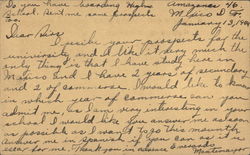 Do you have boarding High
School. Sent me some prospects
too.
Amazonas 46.
Mexico
January 13, 194
Dear Sirs:
I receive your prospects for the
university and I like it very much the
only thing is that I have study here in
Mexico and I have 2 years of secundary
and 2 of commerce. I would like to know
in which year of commerce can you
admit me. Is very interesting for me
that I would like you answer me as soon
as possible as I want to go this month
Answer me in Spanish if you can as is
clear for me. Thank you in advance